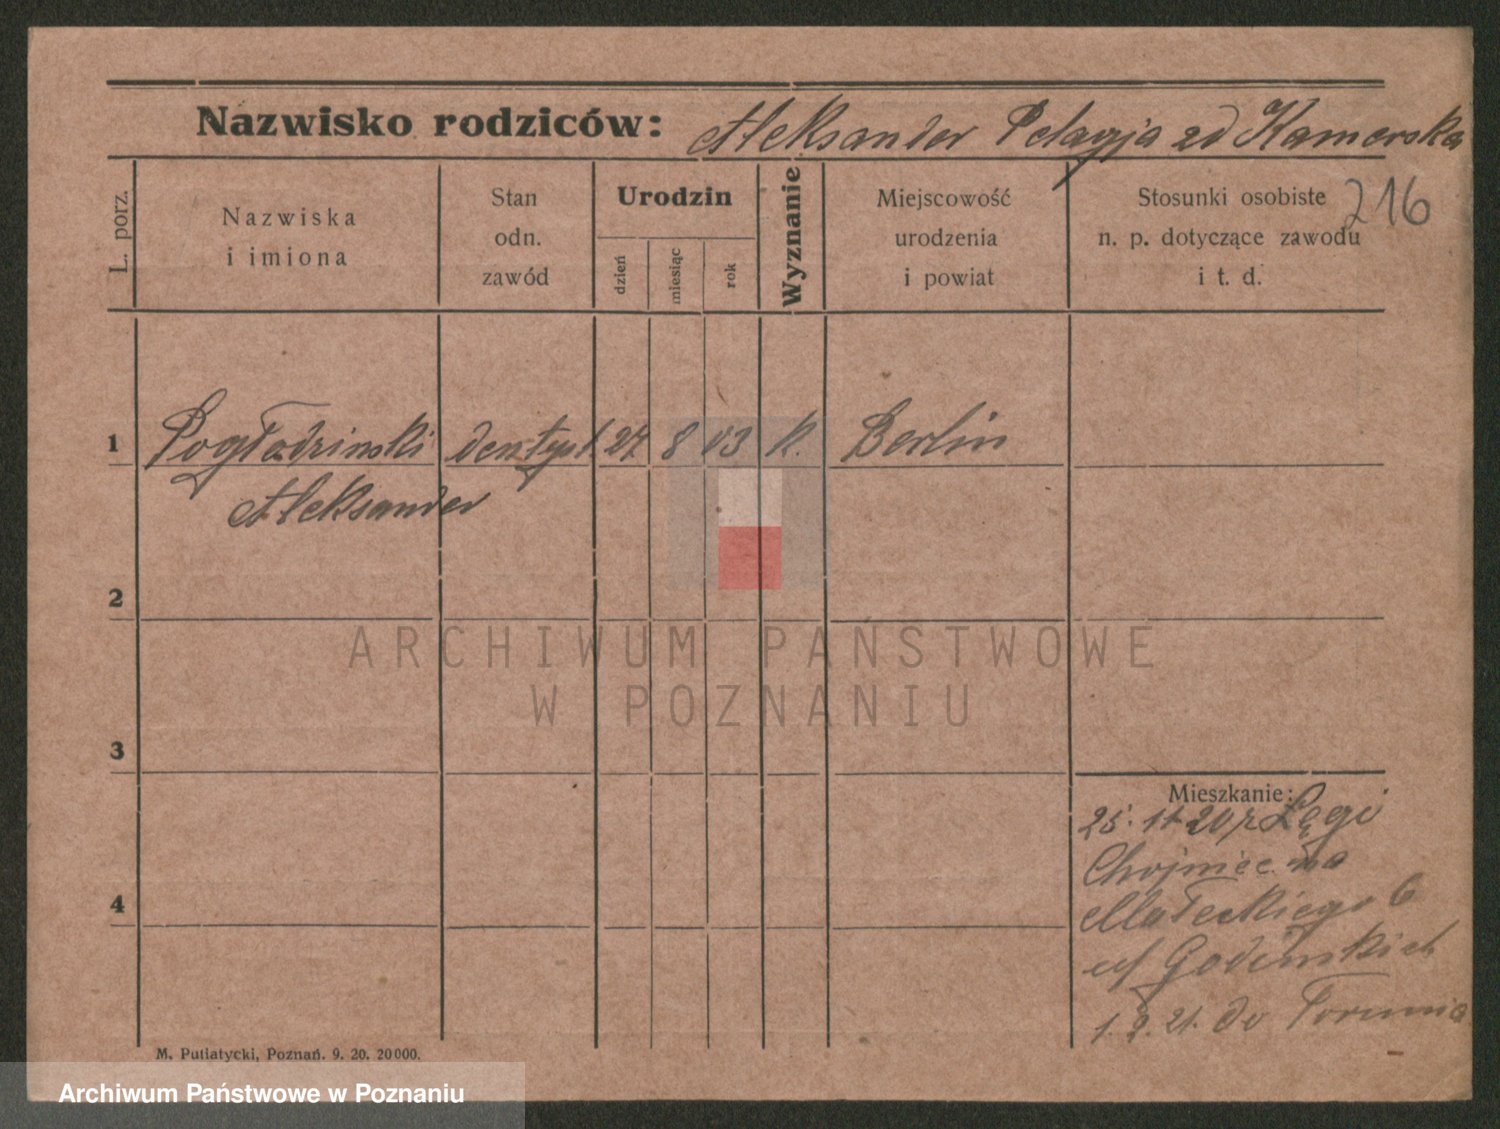 Nazwisko rodziców: Aleksander Pelagja zd Kamerska
216
L. porz.
Nazwiska
i imiona
Stan
odn.
zawód
Urodzin
dzień
miesiąc
rok
Wyznanie
Miejscowość
urodzenia
i powiat
Stosunki osobiste
n. p. dotyczące zawodu
i t. d.
1 Pogładzinski dentyst. 27 8 03 k. Berlin
Aleksander
2
3
4
Mieszkanie:
25. 11 20 z Łęgi
Chojnice na
Małeckiego 6
1. 9. 21. do Torunia
M. Putiatycki, Poznań. 9. 20. 20000.
ARCHIWUM PAŃSTWOWE
W POZNANIU
Archiwum Państwowe w Poznaniu